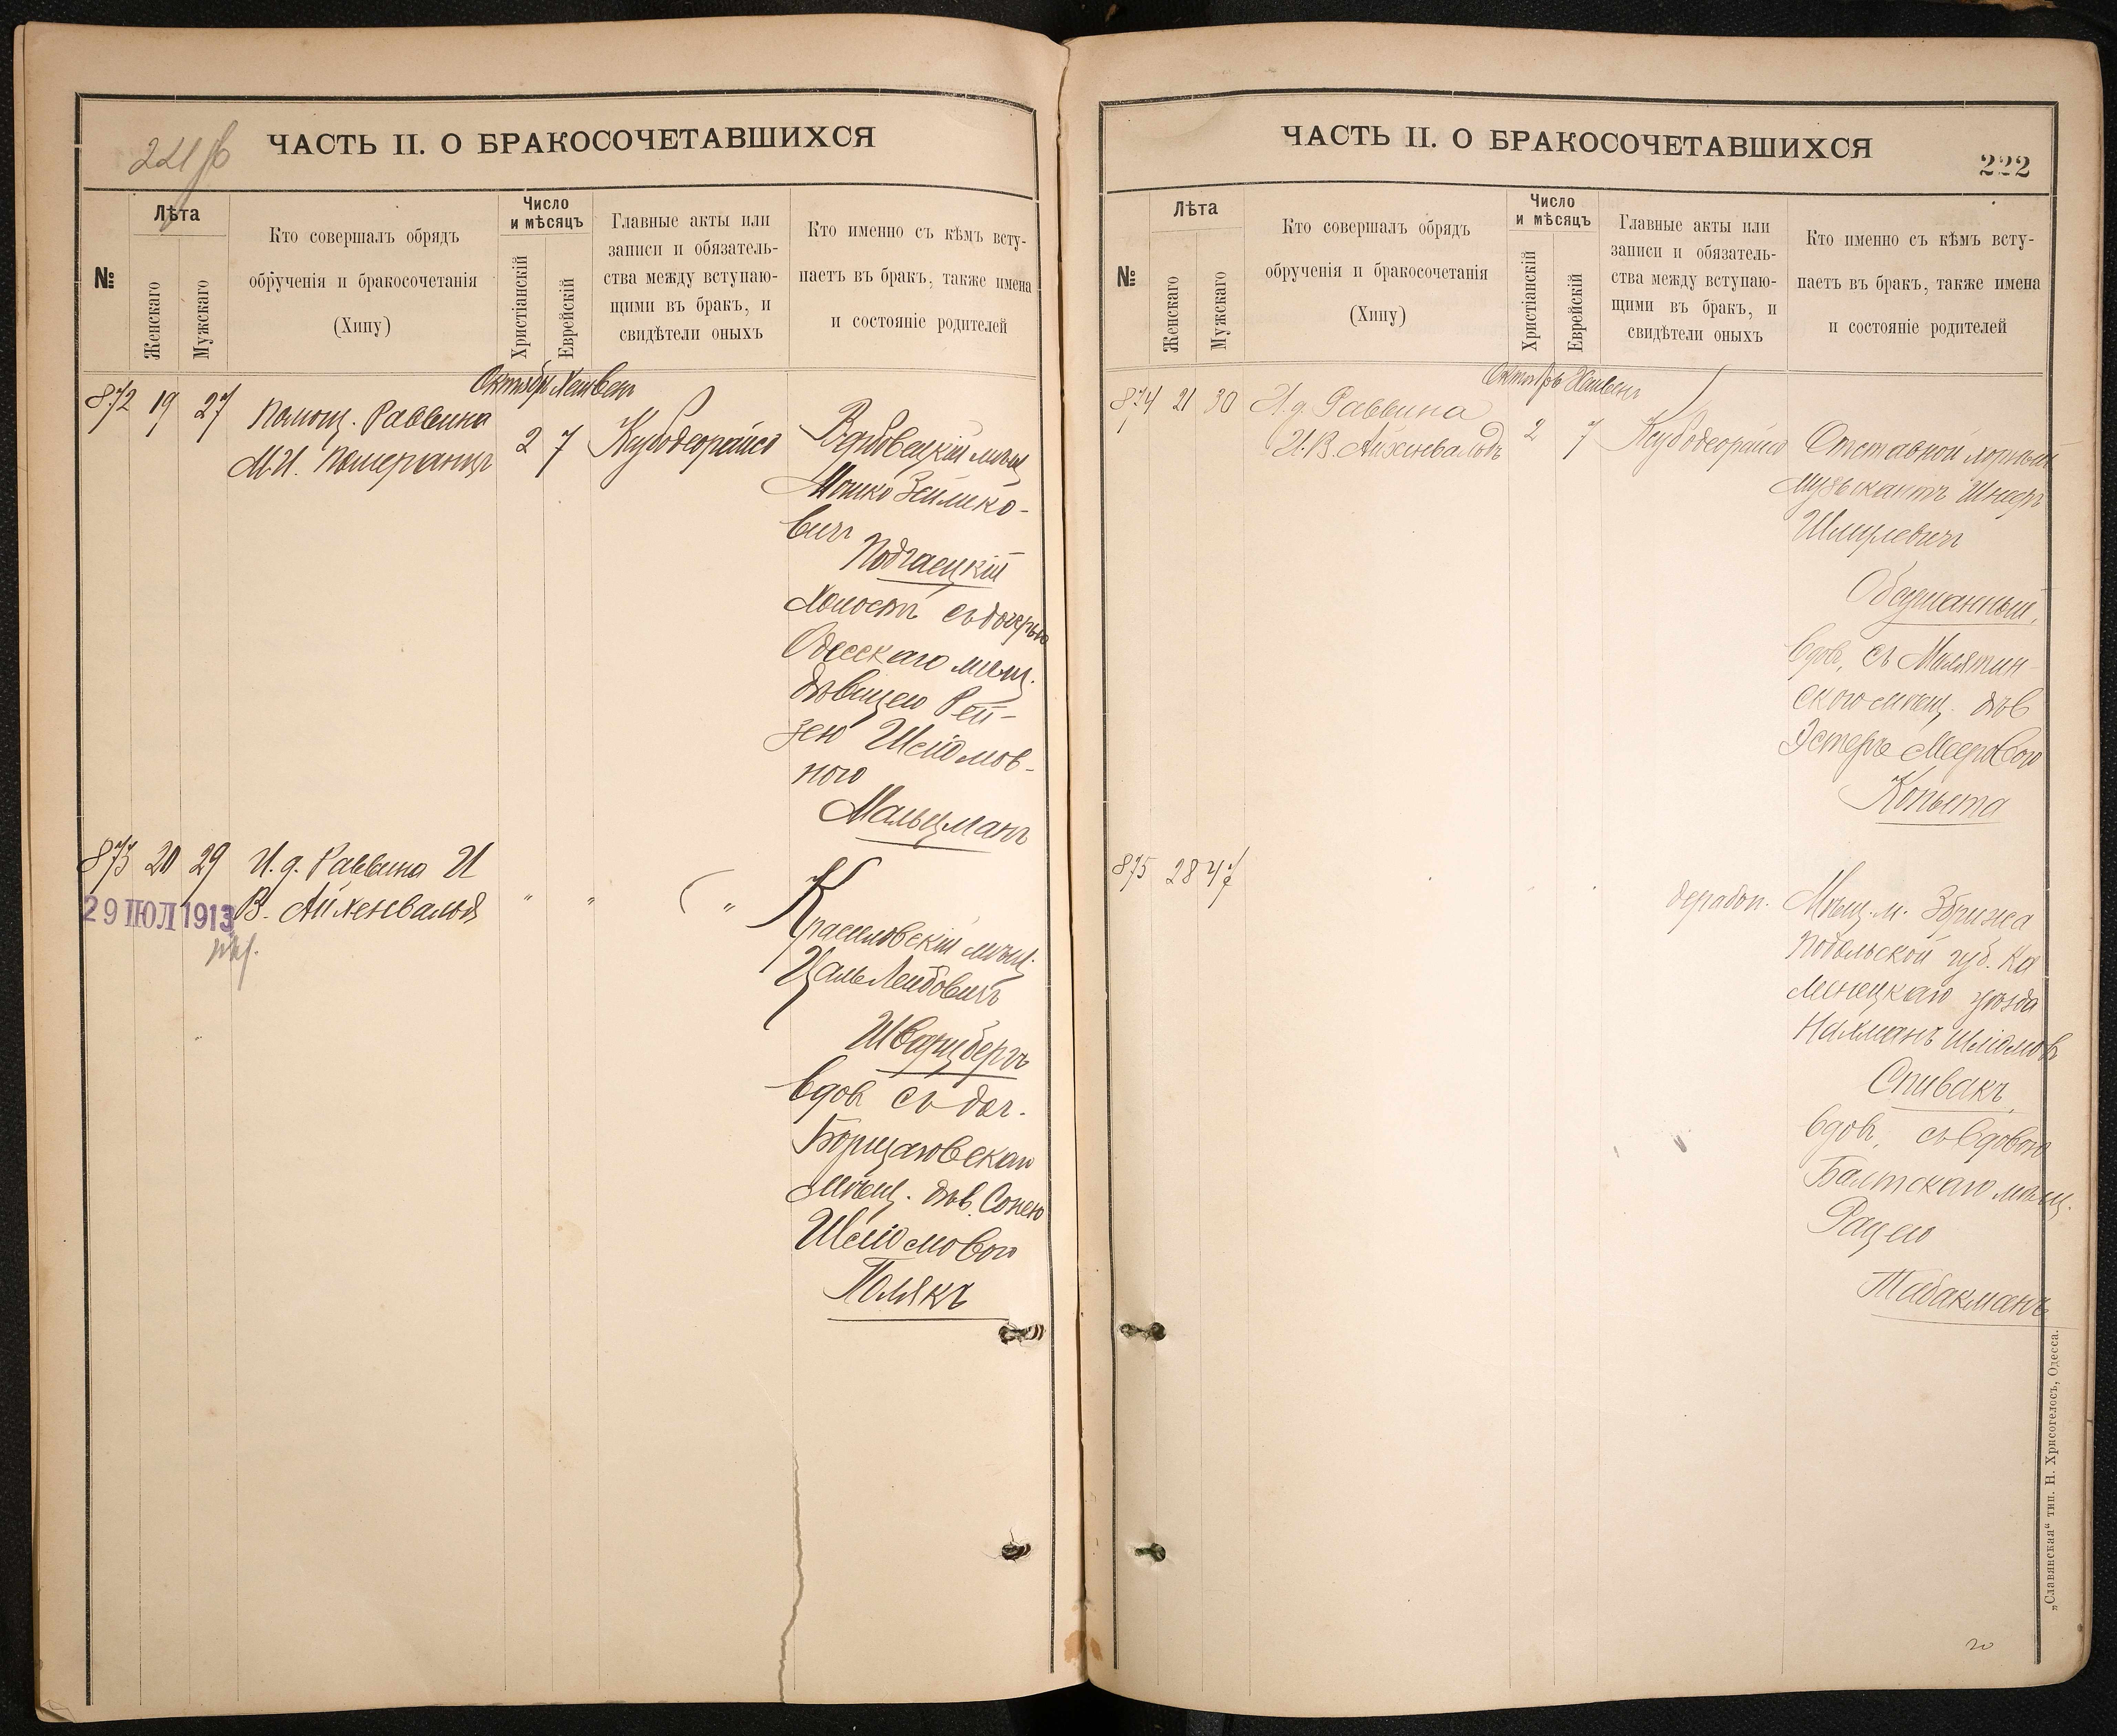 221 об
ЧАСТЬ II. О БРАКОСОЧЕТАВШИХСЯ
№
Лѣта
Женскаго
Мужскаго
Кто совершалъ обрядъ
обрученія и бракосочетанія
(Хипу)
Число
и мѣсяцъ
Христіанскій
Еврейскій
Главные акты или
записи и обязатель-
ства между вступаю-
щими въ бракъ, и
свидѣтели оныхъ
Кто именно съ кѣмъ всту-
паетъ въ бракъ, также имена
и состояніе родителей
Октябрь Хешвенъ
872 19 27
Помощ. Раввина
М. И. Померанцъ
2 7
Вербовецкій мѣщ
Мошко Зейлико-
вичъ
Подгаецкій
холостъ съ дочерью
Одесскаго мѣщ.
дѣвицею Рей-
зею Шеіомов-
ною
Мальцманъ
873 20 29
И. д. Раввина И
В. Айхенвальд
" " "
29 ІЮЛ 1913
Красиловскій мѣщ.
Цаль Лейбовичъ
Шварцбергъ
вдов съ доч.
Борщаговскаго
мѣщ. дѣв. Сонею
Шеіомовою
Полякъ
ЧАСТЬ II. О БРАКОСОЧЕТАВШИХСЯ
222
№
Лѣта
Женскаго
Мужскаго
Кто совершалъ обрядъ
обрученія и бракосочетанія
(Хипу)
Число
и мѣсяцъ
Христіанскій
Еврейскій
Главные акты или
записи и обязатель-
ства между вступаю-
щими въ бракъ, и
свидѣтели оныхъ
Кто именно съ кѣмъ всту-
паетъ въ бракъ, также имена
и состояніе родителей
Октябрь Хешвенъ
874 21 30
И. д. Раввина
И. В. Айхенвальдъ
2 7
Отставной
музыкантъ
Шмулевичъ
вдов. съ
ского мѣщ. дѣв
Эстеръ Мееровою
Копыта
875 28 47
Мѣщ. м. Збрижа
Подольской губ. Ка
менецкаго уѣзда
Нахманъ Шліомов
Спивакъ
вдов. съ вдовою
Балтскаго мѣщ.
Рацею
Табакманъ
„Славянская“ тип. Н. Хрисогелосъ, Одесса.